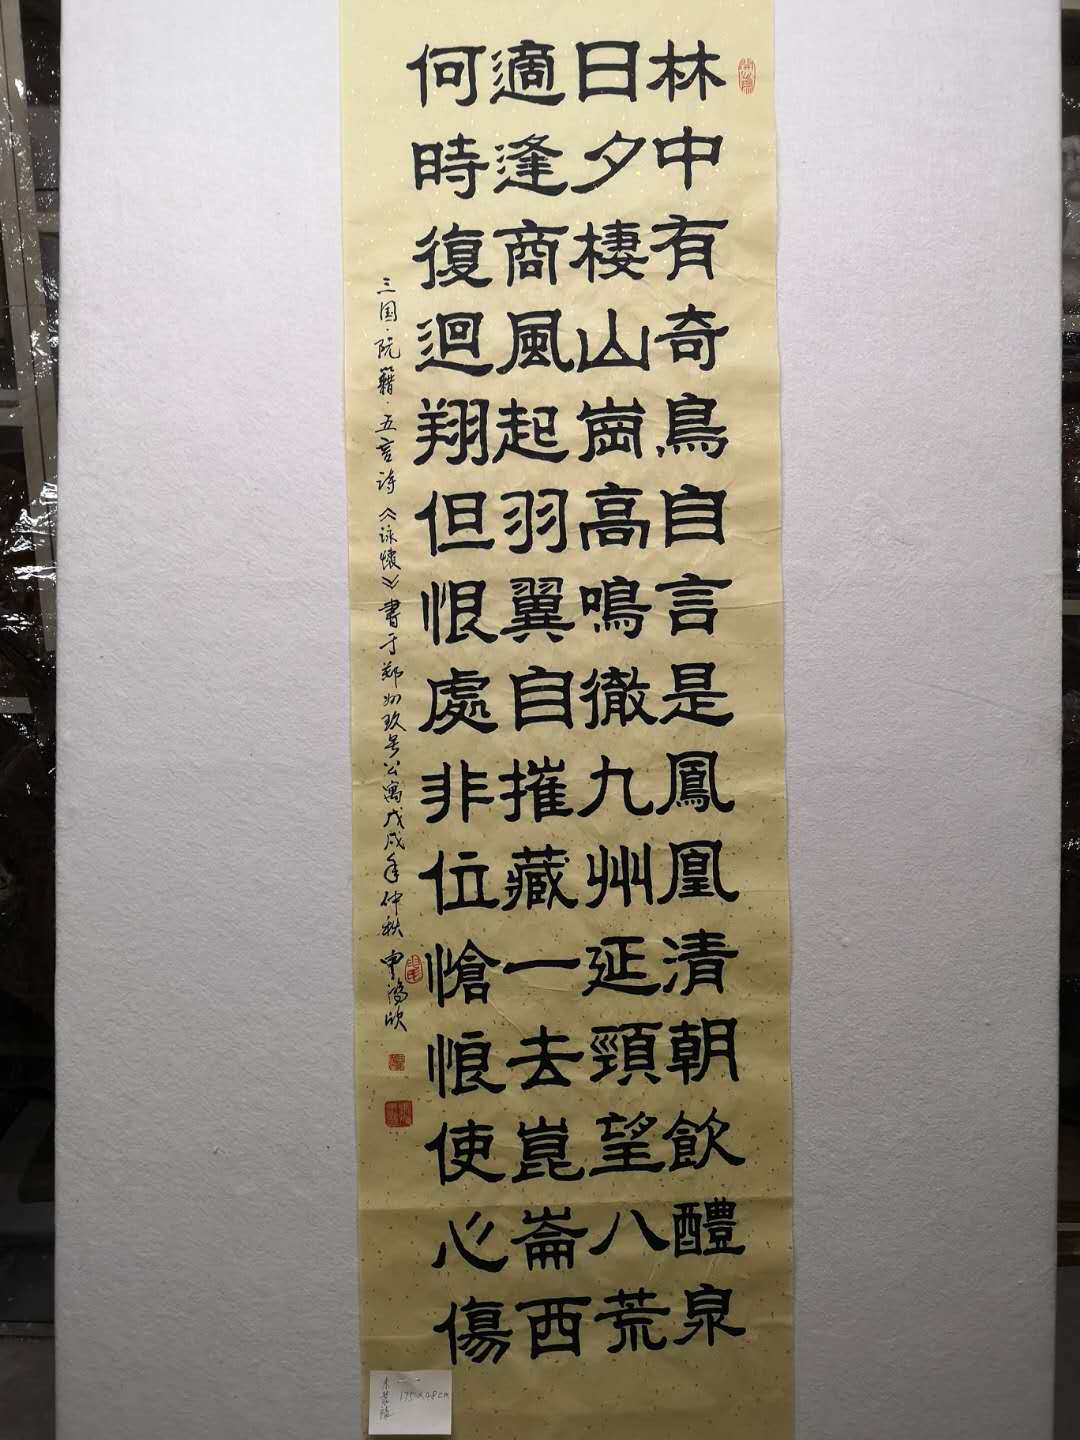 林中有奇鳥自言是鳳凰清朝飲醴泉
日夕棲山崗高鳴徹九州延頸望八荒
適逢商風起羽翼自摧藏一去崑崙西
何時復迴翔但恨處非位愴悢使心傷
三国·阮籍·五言诗《咏懷》書于郑州玖号公寓戊戌年仲秋申鴻欣
175×48cm